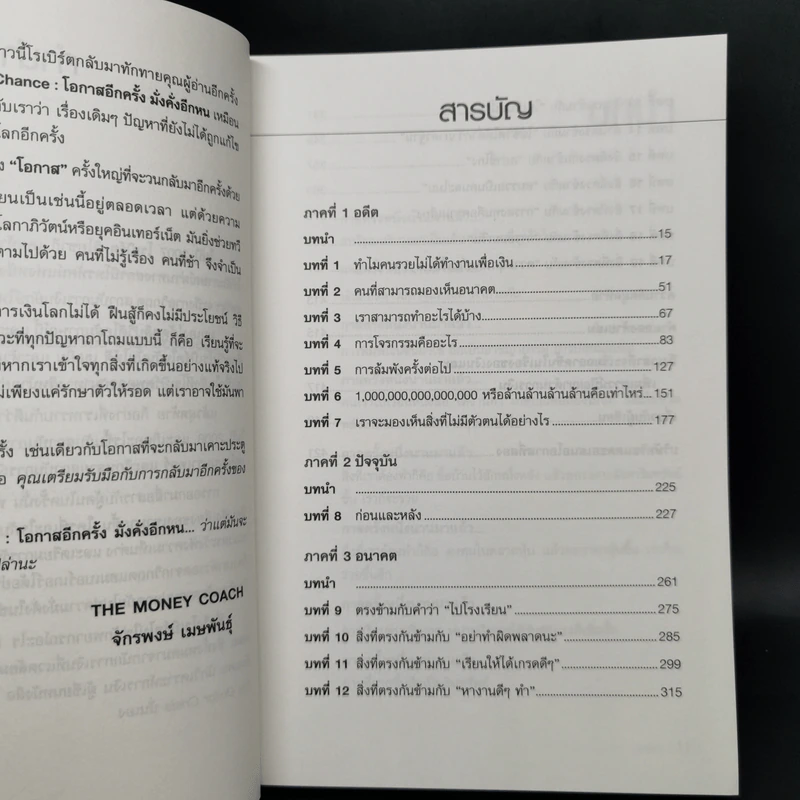 าวนี้โรเบิร์ตกลับมาทักทายคุณผู้อ่านอีกครั้ง
Chance : โอกาสอีกครั้ง มั่งคั่งอีกหน เหมือน
ับเราว่า เรื่องเดิมๆ ปัญหาที่ยังไม่ได้ถูกแก้ไข
โลกอีกครั้ง
ง “โอกาส” ครั้งใหญ่ที่จะวนกลับมาอีกครั้งด้วย
ยนเป็นเช่นนี้อยู่ตลอดเวลา แต่ด้วยความ
โลกาภิวัตน์หรือยุคอินเทอร์เน็ต มันยิ่งช่วยทวี
ตามไปด้วย คนที่ไม่รู้เรื่อง คนที่ช้า จึงจำเป็น
การเงินโลกไม่ได้ ฝืนสู้ก็คงไม่มีประโยชน์ วิธี
วะที่ทุกปัญหาถาโถมแบบนี้ ก็คือ เรียนรู้ที่จะ
หากเราเข้าใจทุกสิ่งที่เกิดขึ้นอย่างแท้จริงไป
ม่เพียงแค่รักษาตัวให้รอด แต่เราอาจใช้มันพา
รั้ง เช่นเดียวกับโอกาสที่จะกลับมาเคาะประตู
อ คุณเตรียมรับมือกับการกลับมาอีกครั้งของ
: โอกาสอีกครั้ง มั่งคั่งอีกหน... ว่าแต่มันจะ
ล่านะ
THE MONEY COACH
จักรพงษ์ เมษพันธุ์
สารบัญ
ภาคที่ 1 อดีต
บทนำ ........ 15
บทที่ 1 ทำไมคนรวยไม่ได้ทำงานเพื่อเงิน ........ 17
บทที่ 2 คนที่สามารถมองเห็นอนาคต ........ 51
บทที่ 3 เราสามารถทำอะไรได้บ้าง ........ 67
บทที่ 4 การโจรกรรมคืออะไร ........ 83
บทที่ 5 การล้มพังครั้งต่อไป ........ 127
บทที่ 6 1,000,000,000,000 หรือล้านล้านล้านล้านคือเท่าไหร่... 151
บทที่ 7 เราจะมองเห็นสิ่งที่ไม่มีตัวตนได้อย่างไร ........ 177
ภาคที่ 2 ปัจจุบัน
บทนำ ........ 225
บทที่ 8 ก่อนและหลัง ........ 227
ภาคที่ 3 อนาคต
บทนำ ........ 261
บทที่ 9 ตรงข้ามกับคำว่า “ไปโรงเรียน” ........ 275
บทที่ 10 สิ่งที่ตรงกันข้ามกับ “อย่าทำผิดพลาดนะ” ........ 285
บทที่ 11 สิ่งที่ตรงกันข้ามกับ “เรียนให้ได้เกรดดีๆ” ........ 299
บทที่ 12 สิ่งที่ตรงกันข้ามกับ “หางานดีๆ ทำ” ........ 315